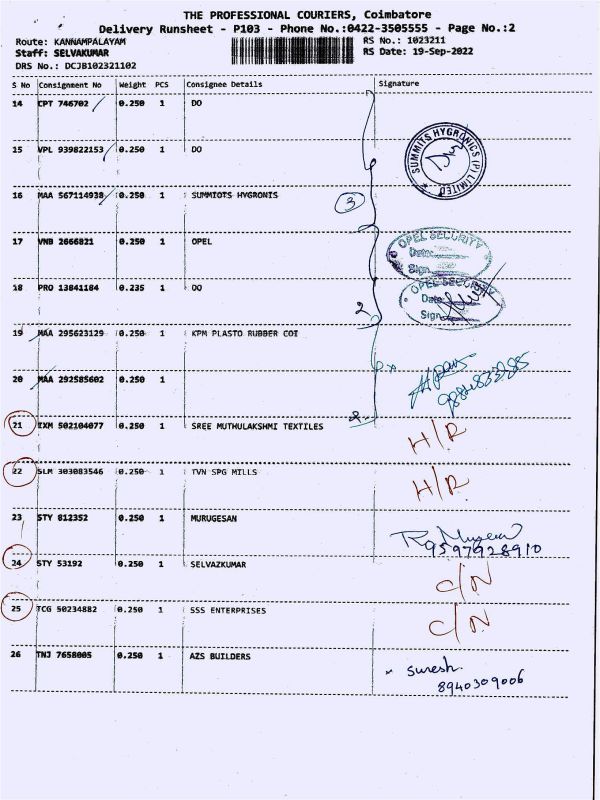 THE PROFESSIONAL COURIERS, Coimbatore
Delivery Runsheet - P103 - Phone No.:0422-3505555 - Page No.:2
Route: KANNAMPALAYAM
RS No.: 1023211
Staff: SELVAKUMAR
RS Date: 19-Sep-2022
DRS No.: DCJB102321102
S No Consignment No Weight PCS Consignee Details Signature
14 CPT 746702 0.250 1 DO
15 VPL 939822153 0.250 1 DO
SUMMITS HYGRONICS (P) LIMITED
16 MAA 567114938 0.250 1 SUMMIOTS HYGRONIS
3
17 VNB 2666821 0.250 1 OPEL
OPEL SECURITY
Date:
Sign
18 PRO 13841184 0.235 1 DO
OPEL SECURITY
Date
Sign
2
19 MAA 295623129 0.250 1 KPM PLASTO RUBBER COI
20 MAA 292585602 0.250 1
21 IXM 502104077 0.250 1 SREE MUTHULAKSHMI TEXTILES
H/R
22 SLM 303083546 0.250 1 TVN SPG MILLS
H/R
23 STY 812352 0.250 1 MURUGESAN
9597928910
24 STY 53192 0.250 1 SELVAZKUMAR
C/N
25 TCG 50234882 0.250 1 SSS ENTERPRISES
C/N
26 TNJ 7658005 0.250 1 AZS BUILDERS
suresh.
8940309006